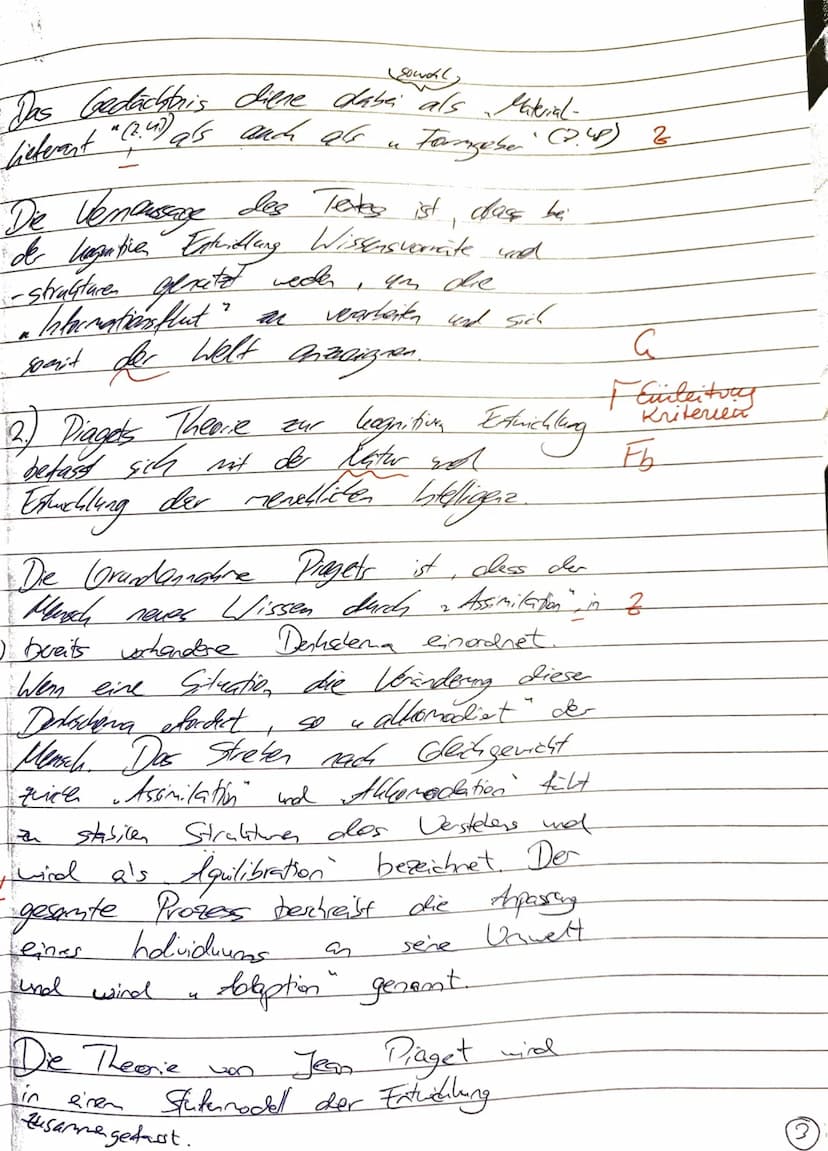 sowohl
Das Gedächtnis diene dabei als „Material-
lieferant" (Z. 47) als auch als „Formgeber" (Z. 48) Z
Die Kernaussage des Textes ist, dass bei
der kognitiven Entwicklung Wissensvorräte und
-strukturen genutzt werden, um die
„Informationsflut" zu verarbeiten und sich
somit der Welt anzueignen. G
Γ Einleitung
Kriterien
2.) Piagets Theorie zur kognitiven Entwicklung
befasst sich mit der Natur und Fb
Entwicklung der menschlichen Intelligenz.
Die Grundannahme Piagets ist, dass der
Mensch neues Wissen durch „Assimilation", in Z
bereits vorhandene Denkschema einordnet.
Wenn eine Situation die Veränderung dieser
Denkschema erfordert, so „akkomodiert" der
Mensch. Das Streben nach Gleichgewicht
zwischen „Assimilation" und „Akkomodation" führt
zu stabilen Strukturen des Verstehens und
wird als „Äquilibration" bezeichnet. Der
gesamte Prozess beschreibt die Anpassung
eines Individuums an seine Umwelt
und wird „Adaption" genannt.
Die Theorie von Jean Piaget wird
in einem Stufenmodell der Entwicklung
zusammengefasst.
3